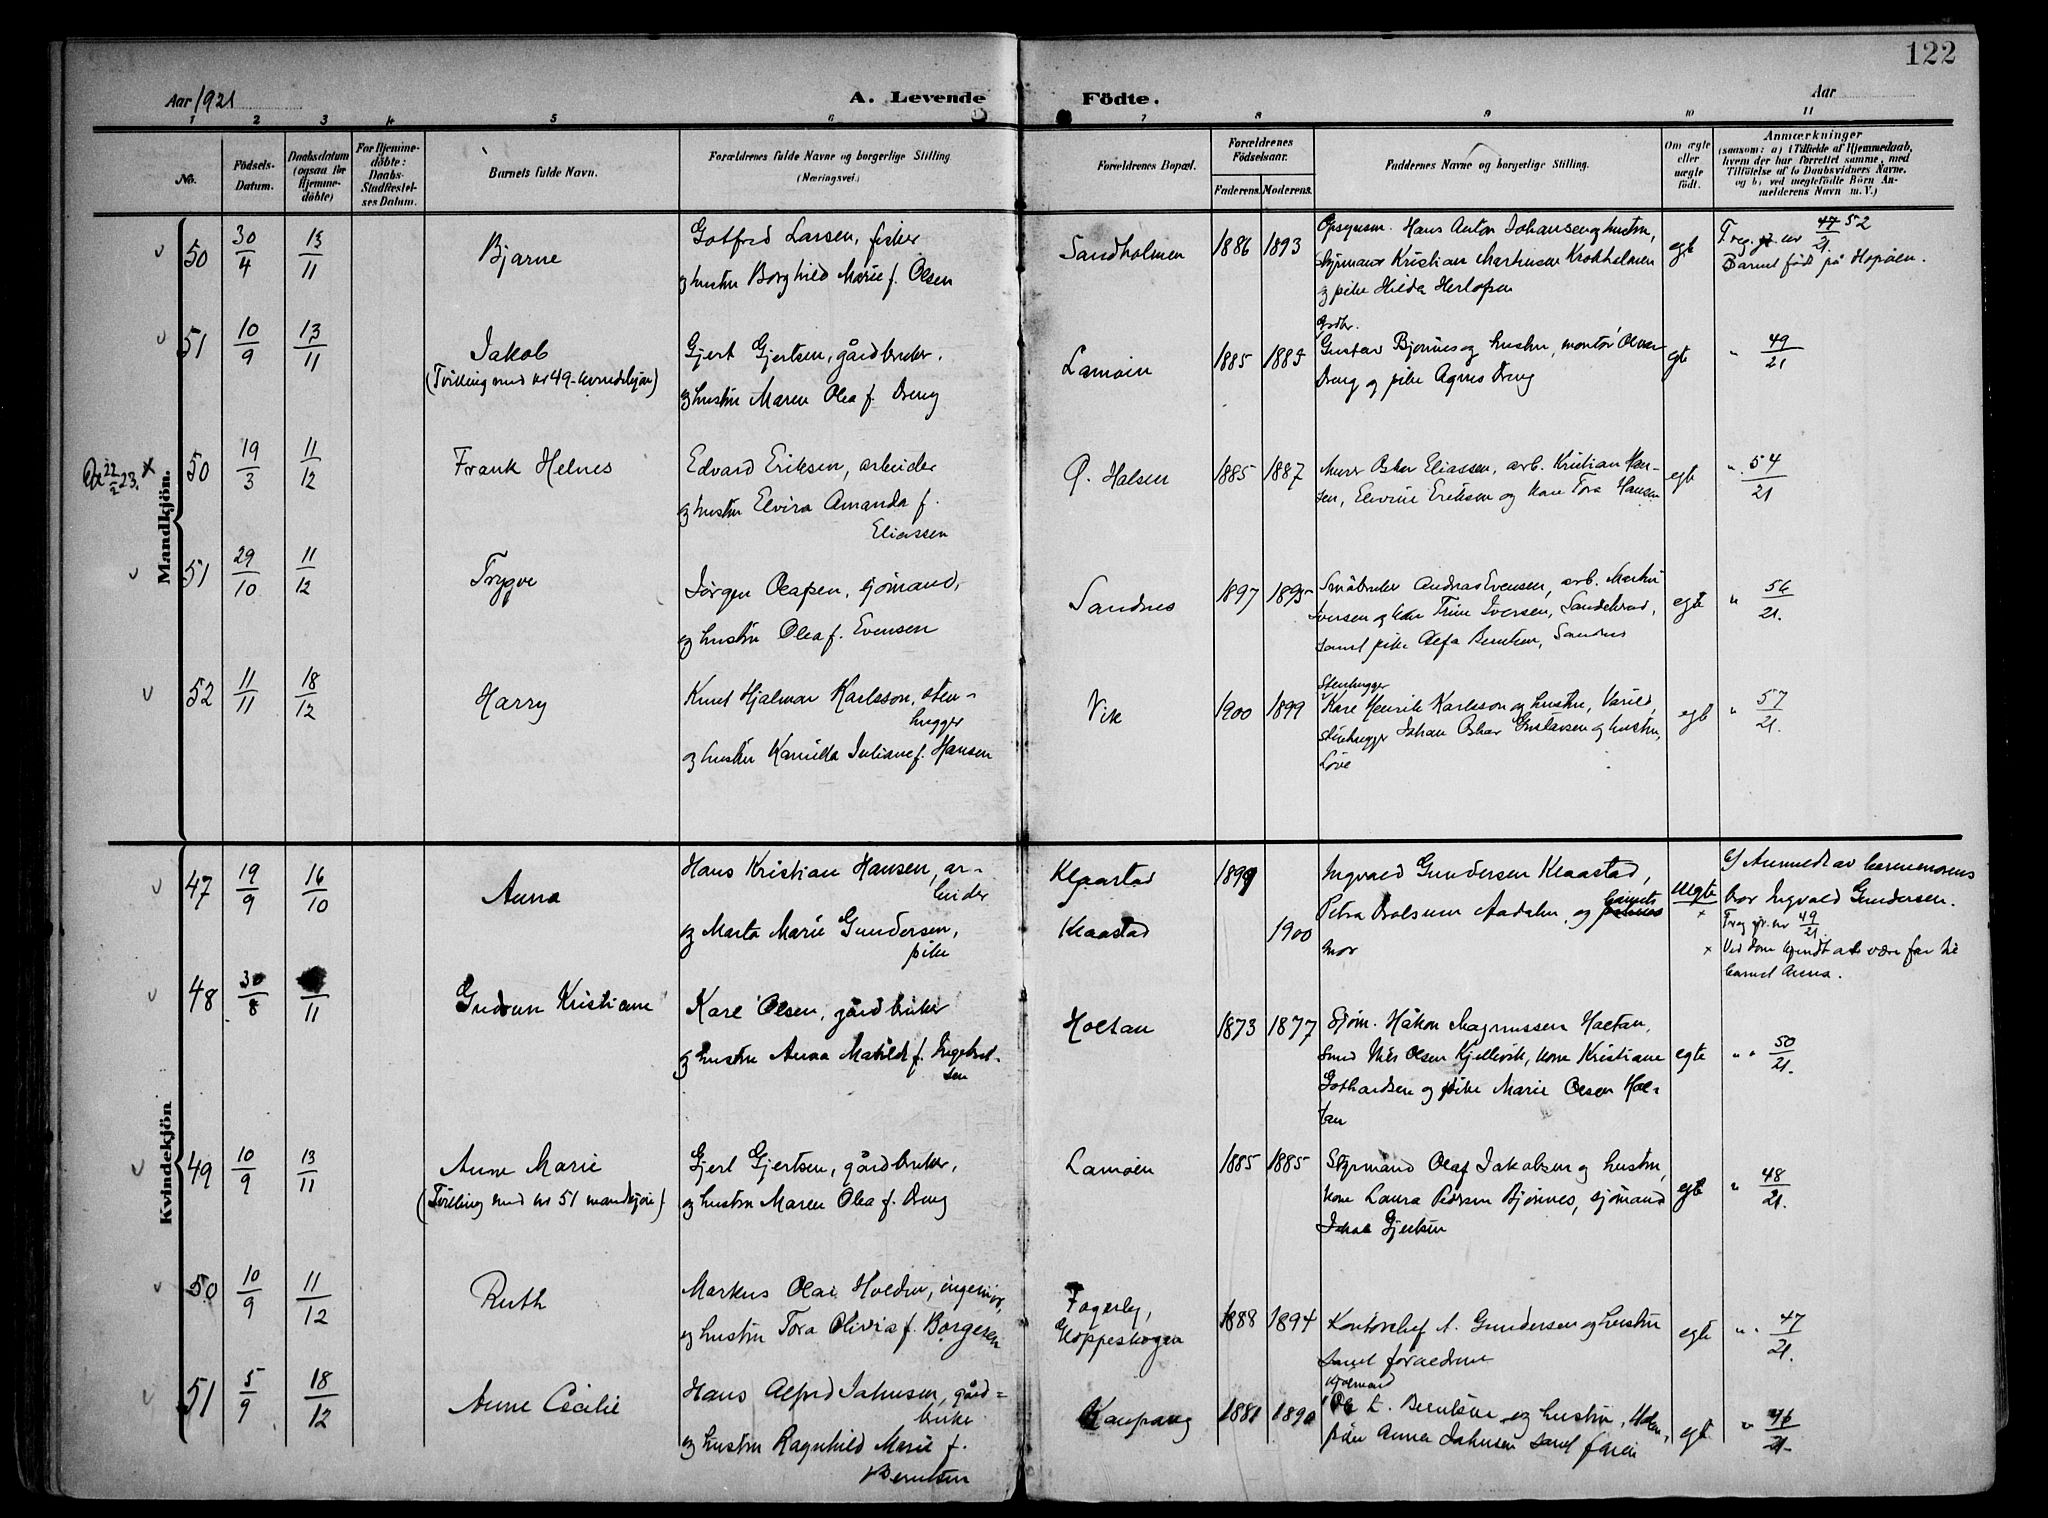 122
Aar 1921
A. Levende Födte.
Aar
1 2 3 4 5 6 7 8 9 10 11
No.
Födsels-
Datum.
Daabsdatum
(ogsaa for
Hjemme-
döbte)
For Hjemme-
döbte:
Daabs-
Stadfæstel-
ses Datum.
Barnets fulde Navn.
Forældrenes fulde Navne og borgerlige Stilling
(Næringsvei.)
Forældrenes Bopæl.
Forældrenes
Födselsaar.
Faderens. Moderens.
Faddernes Navne og borgerlige Stilling.
Om ægte
eller
uægte
födt.
Anmærkninger
(saasom: a) i Tilfælde af Hjemmedaab,
hvem der har forrettet samme, med
Tilföielse af to Daabsvidners Navne,
og b) ved uægtefödte Börn An-
melderens Navn m. V.)
Mandkjön.
50 30/4 13/11
Bjarne
Gotfred Larsen, fisker
og hustru Borghild Marie f. Olsen
Sandholmen
1886 1893
Opsynsm. Hans Anton Johansen og hustru,
styrmand Kristian Markussen Krokholmen
og pike Hilda Herlofsen
egt
F. reg. nr 47 52/21.
Barnet født på Hopøen.
51 10/9 13/11
Jakob
(Tvilling med nr 49 - kvindekjøn)
Gjert Gjertsen, gårdbruker,
og hustru Maren Olea f. Dreng
Lamøen
1885 1885
Grdbr.
Gustav Bjønnes og hustru, montør Olver
Dreng og pike Agnes Dreng
egte
" 49/21
22/2 23. x
50 19/3 11/12
Frank Helnes
Edvard Eriksen, arbeider
og hustru Elvira Amanda f.
Eliassen
Ø. Halsen
1885 1887
Murer Oskar Eliassen, arb. Kristian Han-
sen, Elvine Eriksen og kone Tora Hansen
egte
" 54/21
51 29/10 11/12
Trygve
Jørgen Olafsen, sjømand,
og hustru Olea f. Evensen
Sandnes
1897 1895
Småbruker Andreas Evensen, arb. Martin
Iversen og kone Trine Iversen, Sandekrad,
samt pike Alfa Berntsen, Sandnes
egte
" 56/21.
52 11/11 18/12
Harry
Knut Hjalmar Karlsson, sten-
hugger
og hustru Kamilla Juliane f. Hansen
Vik
1900 1899
Stenhugger
Karl Henrik Karlsson og hustru, Varild,
stenhugger Johan Oskar Gustavsen og hustru,
Løve
egte
" 57/21.
Kvindekjön
47 19/9 16/10
Anna
Hans Kristian Hansen, ar-
beider
og Marta Marie Gundersen,
pike
Klaastad
Klaastad
1899
1900
Ingvald Gundersen Klaastad,
Petra Aadalen, og barnets
mor
uegte
x
Anmeldt av barnemorens
bror Ingvald Gundersen.
F. reg. nr 49/21.
x Ved dom kjendt at være far til
barnet Anna.
48 30/8 /11
Gudrun Kristiane
Karl Olsen, gårdbruker
og hustru Anna Matilde f. Ingebret-
sen
Holtan
1873 1877
Sjøm. Håkon Magnussen Holtan,
smed Nils Olsen Kjellvik, kone Kristiane
Gothardsen og pike Marie Olsen Hol-
tan
egte
" " 50/21.
49 10/9 13/11
Anne Marie
(Tvilling med nr 51 mandkjøn).
Gjert Gjertsen, gårdbruker,
og hustru Maren Olea f. Dreng
Lamøen
1885 1885
Styrmand Olaf Jakobsen og hustru,
kone Laura Pedersen Bjønnes, sjømand
Jakob Gjertsen
egte
" 48/21.
50 10/9 11/12
Ruth
Markus Olai Holden, ingeniør,
og hustru Tora Olivia f. Borgesen
Fagerly,
Hoppeskogen
1888 1894
Kontorchef A. Gundersen og hustru
samt forældrene
egte
" " 47/21.
51 5/9 18/12
Anne Cecilie
Hans Alfred Jahnsen, gård-
bruker
og hustru Ragnhild Marie f.
Berntsen
Kaupang
1881 1890
sjømand
Ole L. Berntsen og hustru,
pike Anna Jahnsen samt faren
egt
" 46/21-